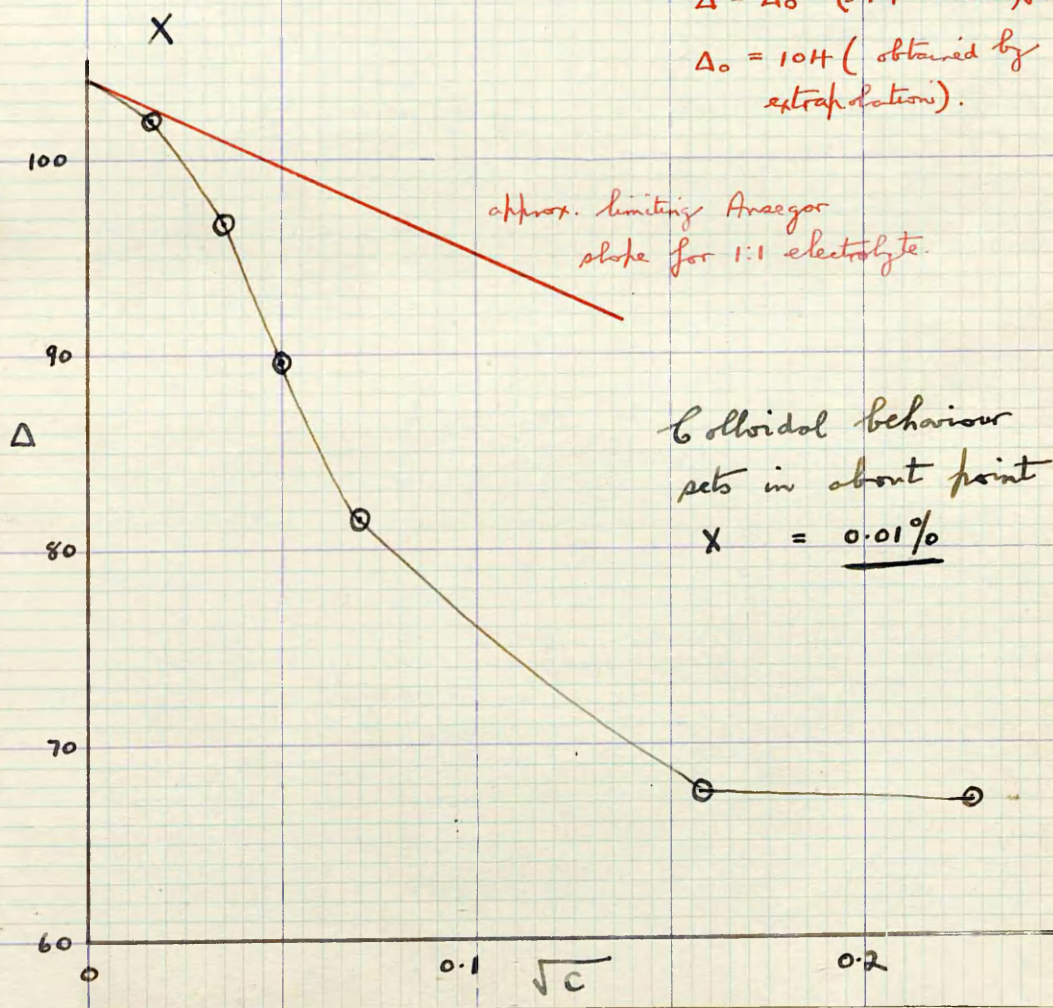 Δ = Δ₀ -
X
Δ₀ = 104 ( obtained by
extrapolation).
100
approx. limiting Onsegor
slope for 1:1 electrolyte.
90
Δ
Colloidal behaviour
sets in about point
80
X = 0.01%
70
60
0
0.1
√c
0.2